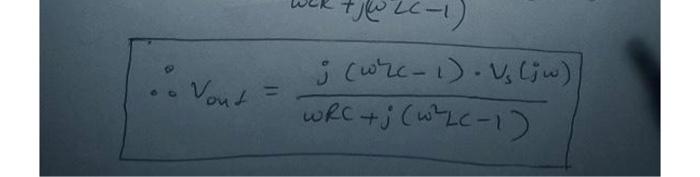 ωCR + j(ω²LC - 1)
∴ Vout = j (ω²LC - 1) · Vs(jω)
ωRC + j (ω²LC - 1)